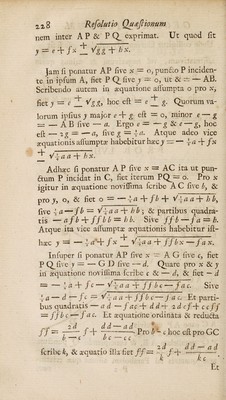 228 Resolutio Quæstionum
nem inter AP & PQ exprimat. Ut quod sit
y = e + fx ± √gg + hx.
Jam si ponatur AP sive x = 0, puncto P inciden-
te in ipsum A, fiet PQ sive y = 0, ut & = — AB.
Scribendo autem in æquatione assumpta 0 pro x,
fiet y = e ± √gg, hoc est = e ± g. Quorum va-
lorum ipsius y major e + g est = 0, minor e — g
= — AB sive — a. Ergo e = — g & e — g, hoc
est — 2g = — a, sive g = ½a. Atque adeo vice
æquationis assumptæ habebitur hæc y = — ½a + fx
± √¼aa + hx.
Adhæc si ponatur AP sive x = AC ita ut pun-
ctum P incidat in C, fiet iterum PQ = 0. Pro x
igitur in æquatione novissima scribe AC sive b, &
pro y, 0, & fiet 0 = — ½a + fb + √¼aa + hb,
sive ½a — fb = √¼aa + hb; & partibus quadra-
tis — afb + ffbb = hb. Sive ffb — fa = h.
Atque ita vice assumptæ æquationis habebitur ist-
hæc y = — ½a + fx ± √¼aa + ffbx — fax.
Insuper si ponatur AP sive x = AG sive c, fiet
PQ sive y = — GD sive — d. Quare pro x & y
in æquatione novissima scribe c & — d, & fiet — d
= — ½a + fc — √¼aa + ffbc — fac. Sive
½a — d — fc = √¼aa + ffbc — fac. Et parti-
bus quadratis — ad — fac + dd + 2dcf + ccff
= ffbc — fac. Et æquatione ordinata & reducta
ff = 2d/b — c f + dd — ad/bc — cc. Pro b — c hoc est pro GC
scribe k, & æquatio illa fiet ff = 2d/k f + dd — ad/kc.
Et